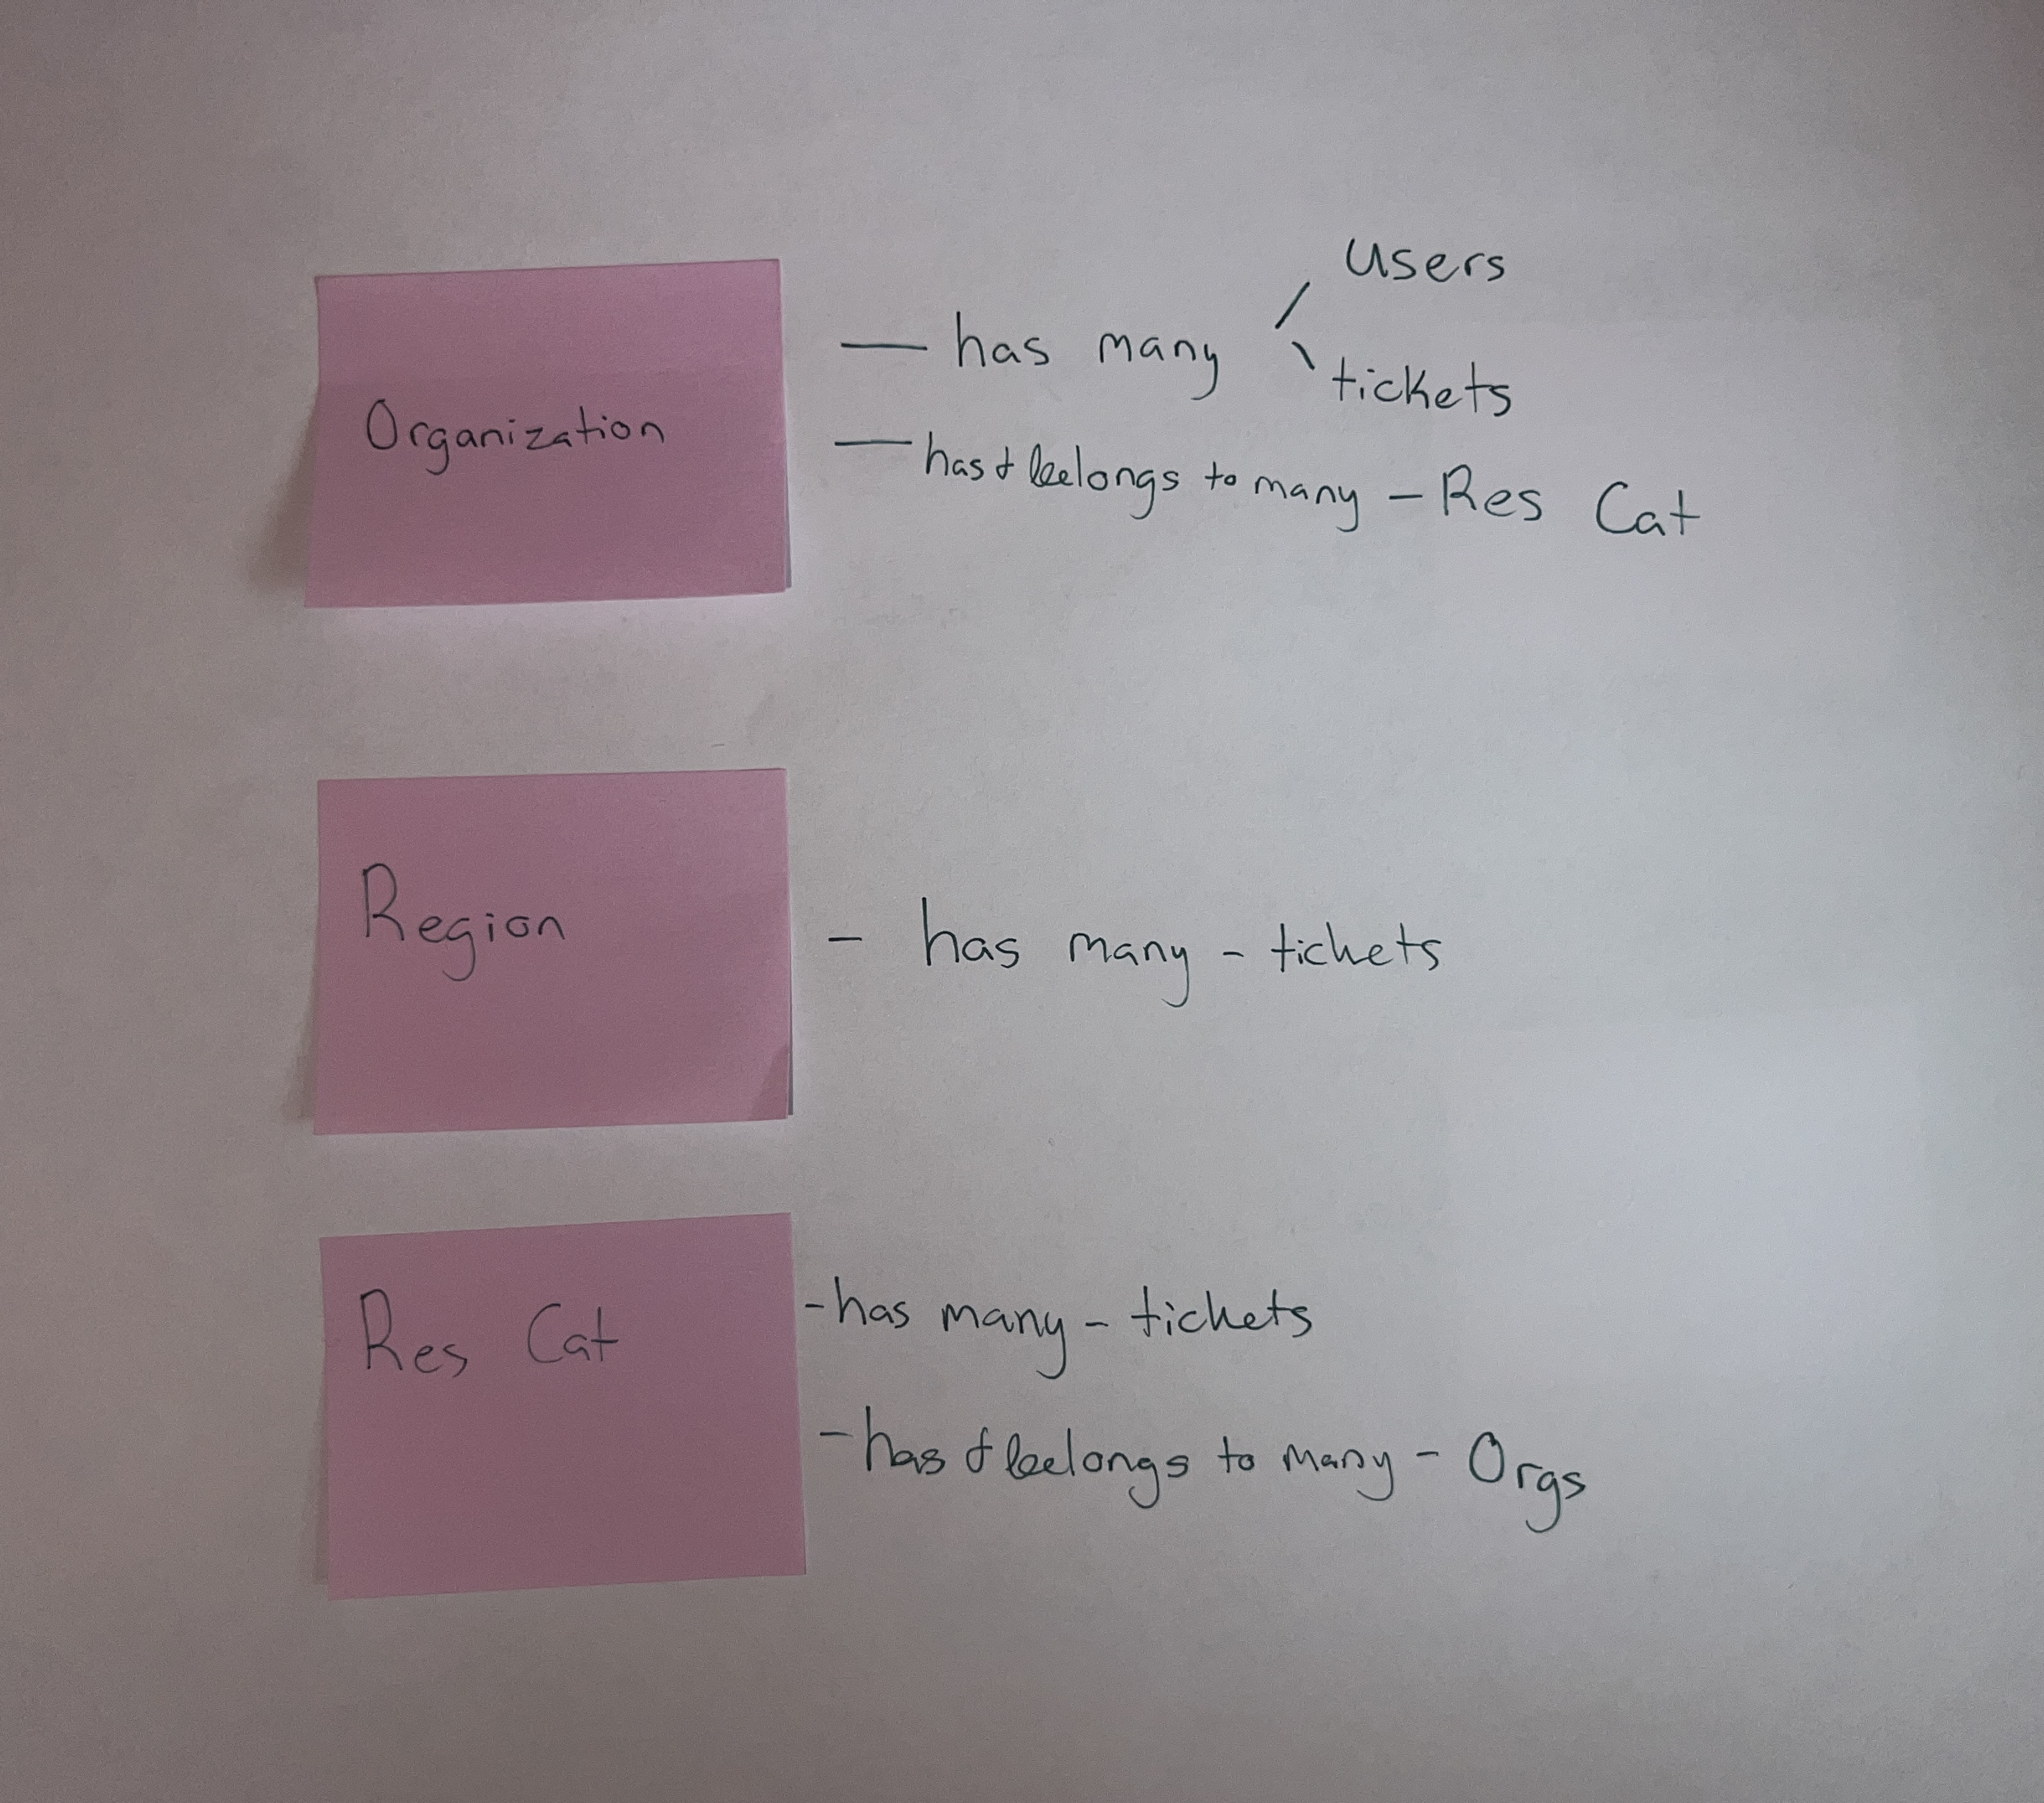 Users
Organization — has many / \ tickets
— has & belongs to many - Res Cat
Region - has many - tickets
Res Cat - has many - tickets
- has & belongs to many - Orgs